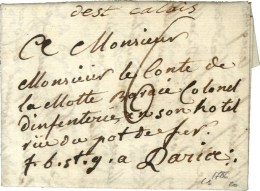 dest calais
A Monsieur
Monsieur le Conte de
la Motte Colonel
dinfenterie en son hotel
rue du pot de fer
f. b. st. g. a Paris